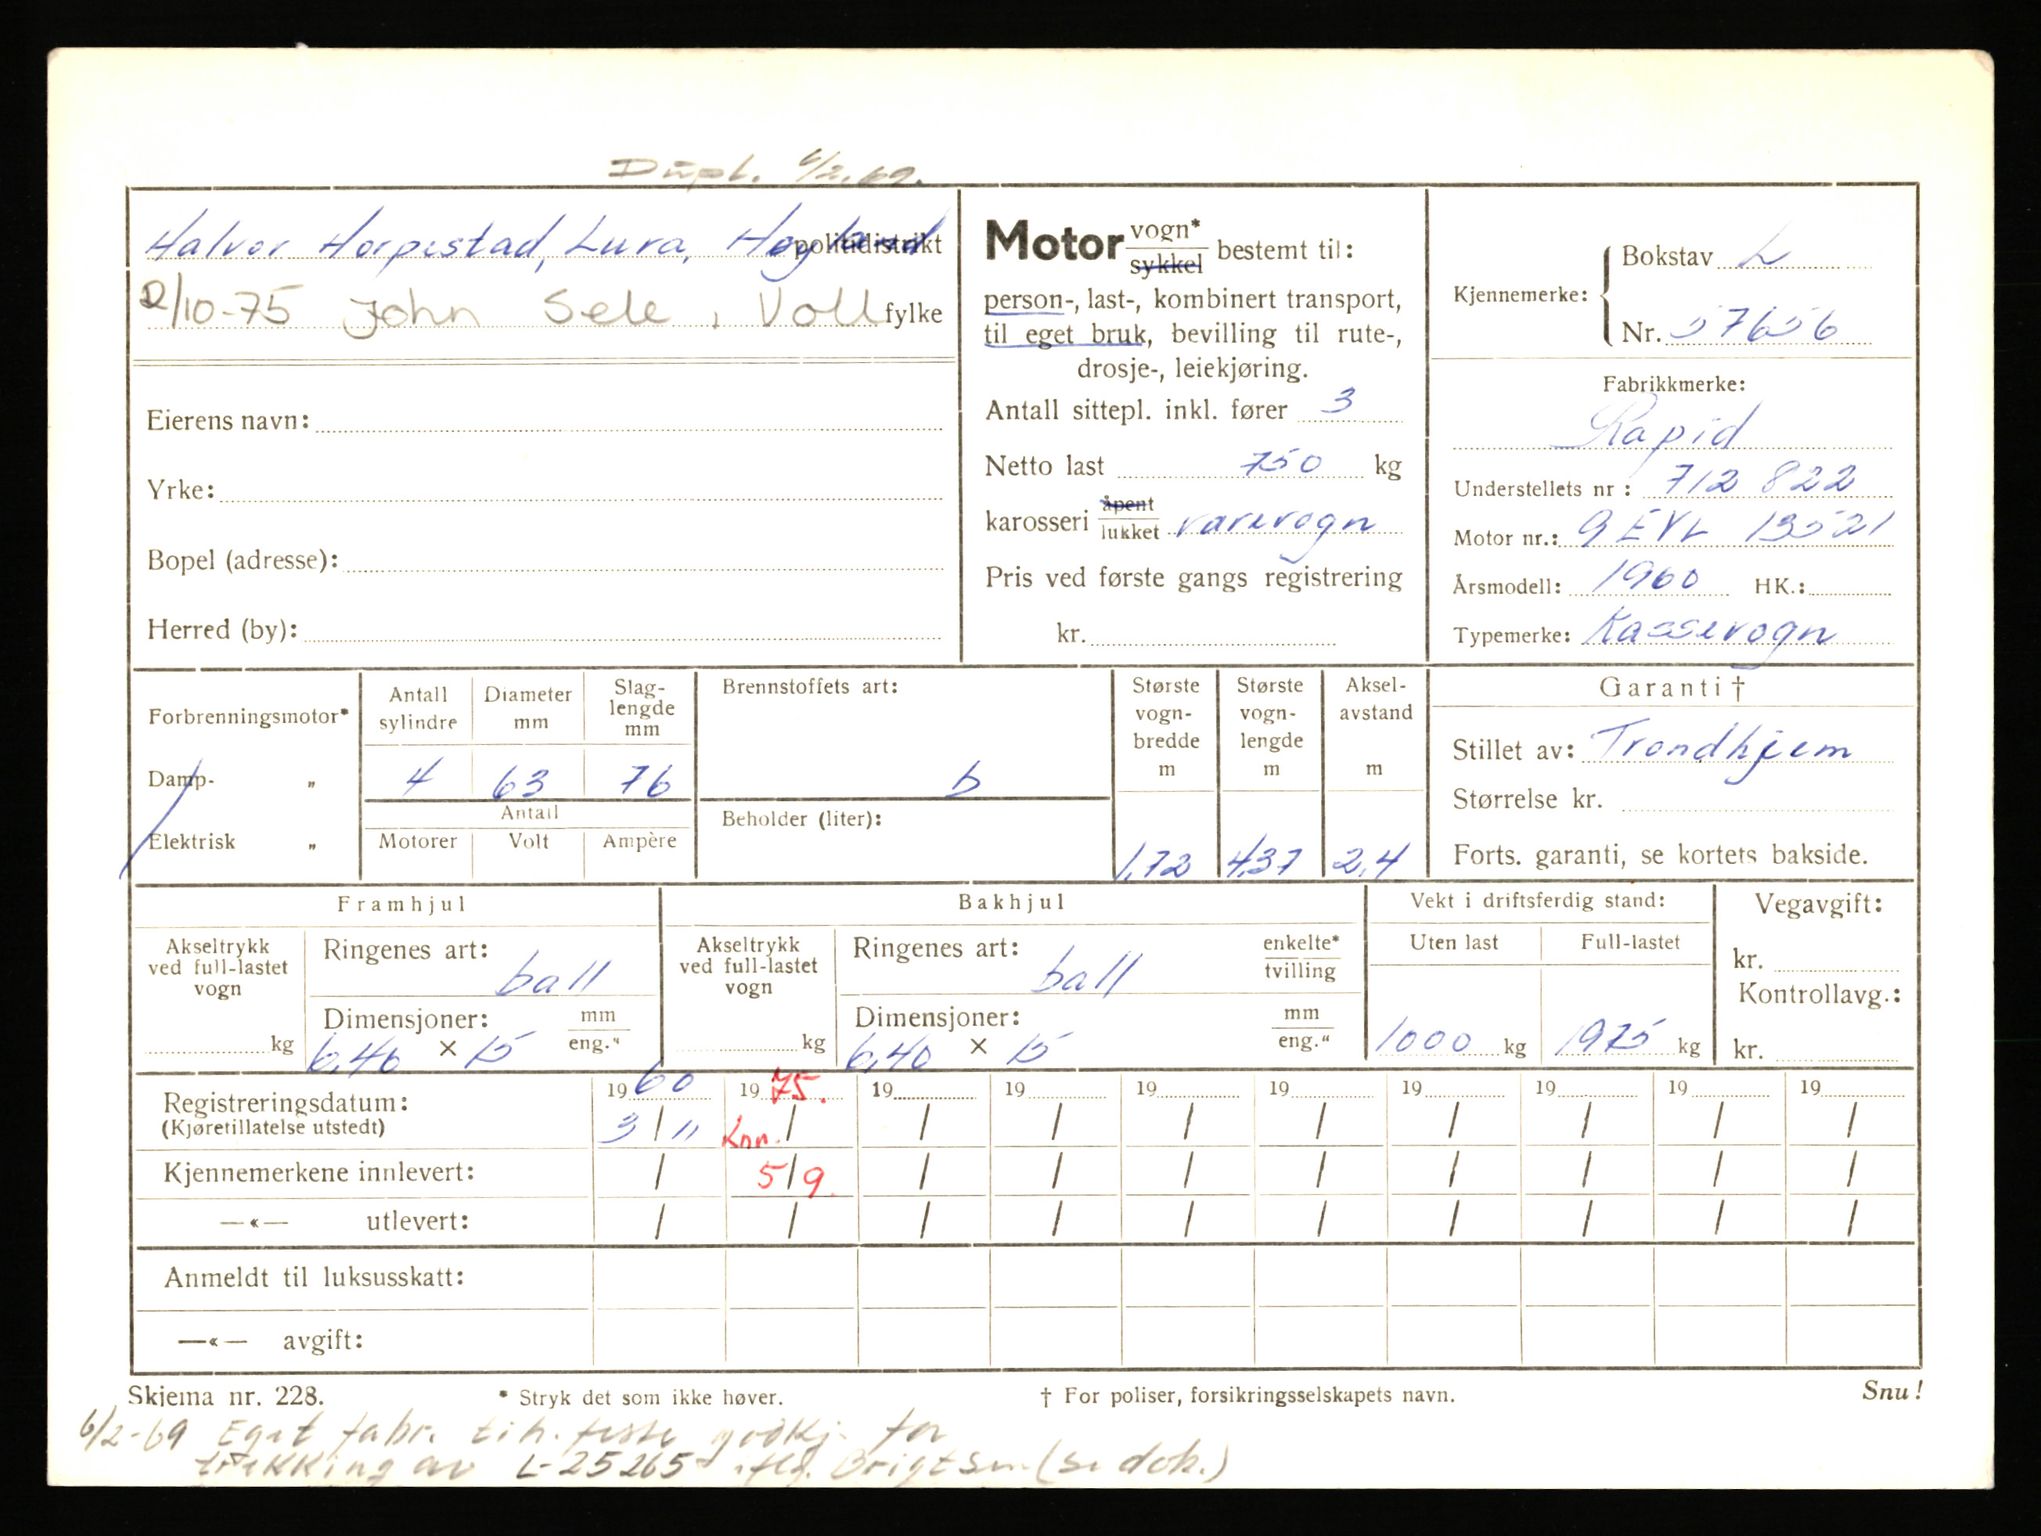 Dupl. 6/2.69.
Halvor Horpestad, Lura, Høyland politidistrikt
2/10-75 John Sele, Voll fylke
Eierens navn:
Yrke:
Bopel (adresse):
Herred (by):
Motor vogn* sykkel bestemt til:
person-, last-, kombinert transport,
til eget bruk, bevilling til rute-,
drosje-, leiekjøring.
Antall sittepl. inkl. fører 3
Netto last 750 kg
karosseri åpent lukket varevogn
Pris ved første gangs registrering
kr.
Kjennemerke: Bokstav L
Nr. 57656
Fabrikkmerke:
Rapid
Understellets nr: 712 822
Motor nr.: 9 EVL 13521
Årsmodell: 1960 HK.:
Typemerke: Kassevogn
Forbrenningsmotor*
Damp- „
Elektrisk „
Antall sylindre
Diameter mm
Slag-lengde mm
4 63 76
Antall
Motorer Volt Ampère
Brennstoffets art:
b
Beholder (liter):
Største vogn-bredde m
1,72
Største vogn-lengde m
4,37
Aksel-avstand m
2,4
Garanti †
Stillet av: Trondhjem
Størrelse kr.
Forts. garanti, se kortets bakside.
Framhjul
Akseltrykk ved full-lastet vogn
kg
Ringenes art:
ball
Dimensjoner: mm eng."
6,40 × 15
Bakhjul
Akseltrykk ved full-lastet vogn
kg
Ringenes art: enkelte* tvilling
ball
Dimensjoner: mm eng."
6,40 × 15
Vekt i driftsferdig stand:
Uten last Full-lastet
1000 kg 1975 kg
Vegavgift:
kr.
Kontrollavg.:
kr.
Registreringsdatum: 1960 1975. 19 19 19 19 19 19 19 19
(Kjøretillatelse utstedt) 3/11 / / / / / / / / /
Kjennemerkene innlevert: / 5/9. / / / / / / / /
—«— utlevert: / / / / / / / / / /
Anmeldt til luksusskatt:
—«— avgift:
Skjema nr. 228. * Stryk det som ikke høver. † For poliser, forsikringsselskapets navn. Snu!
6/2-69 Eget fabr. til. feste godkj. for
trekking av L-25265 iflg. Brigtsen (se dok.)